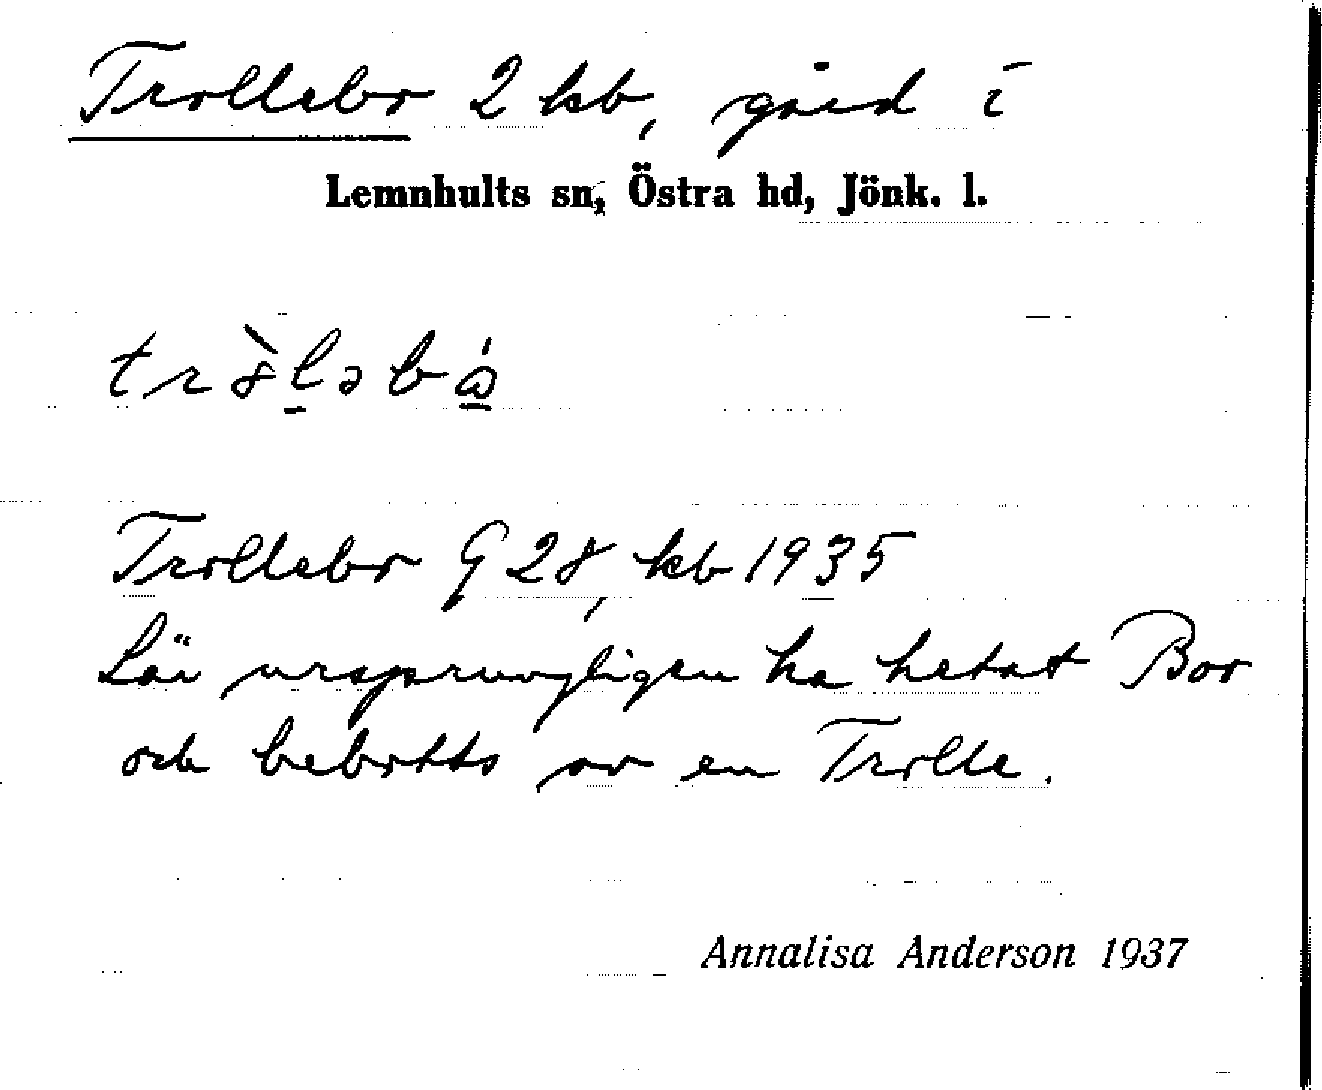 Trollebo 2 kb, gård i
Lemnhults sn, Östra hd, Jönk. l.
tròləbó
Trollebo G 28, kb 1935
Lär ursprungligen ha hetat Bor
och bebotts av en Trolle.
Annalisa Anderson 1937